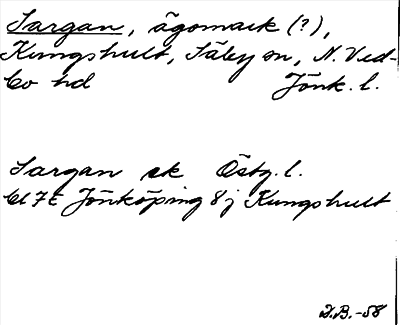 Sargan, ägomark (?),
Kungshult, Säby sn, N. Ved-
bo hd Jönk. l.
Sargan sk Östg. l.
bl 7E Jönköping 8j Kungshult
D.B.-58